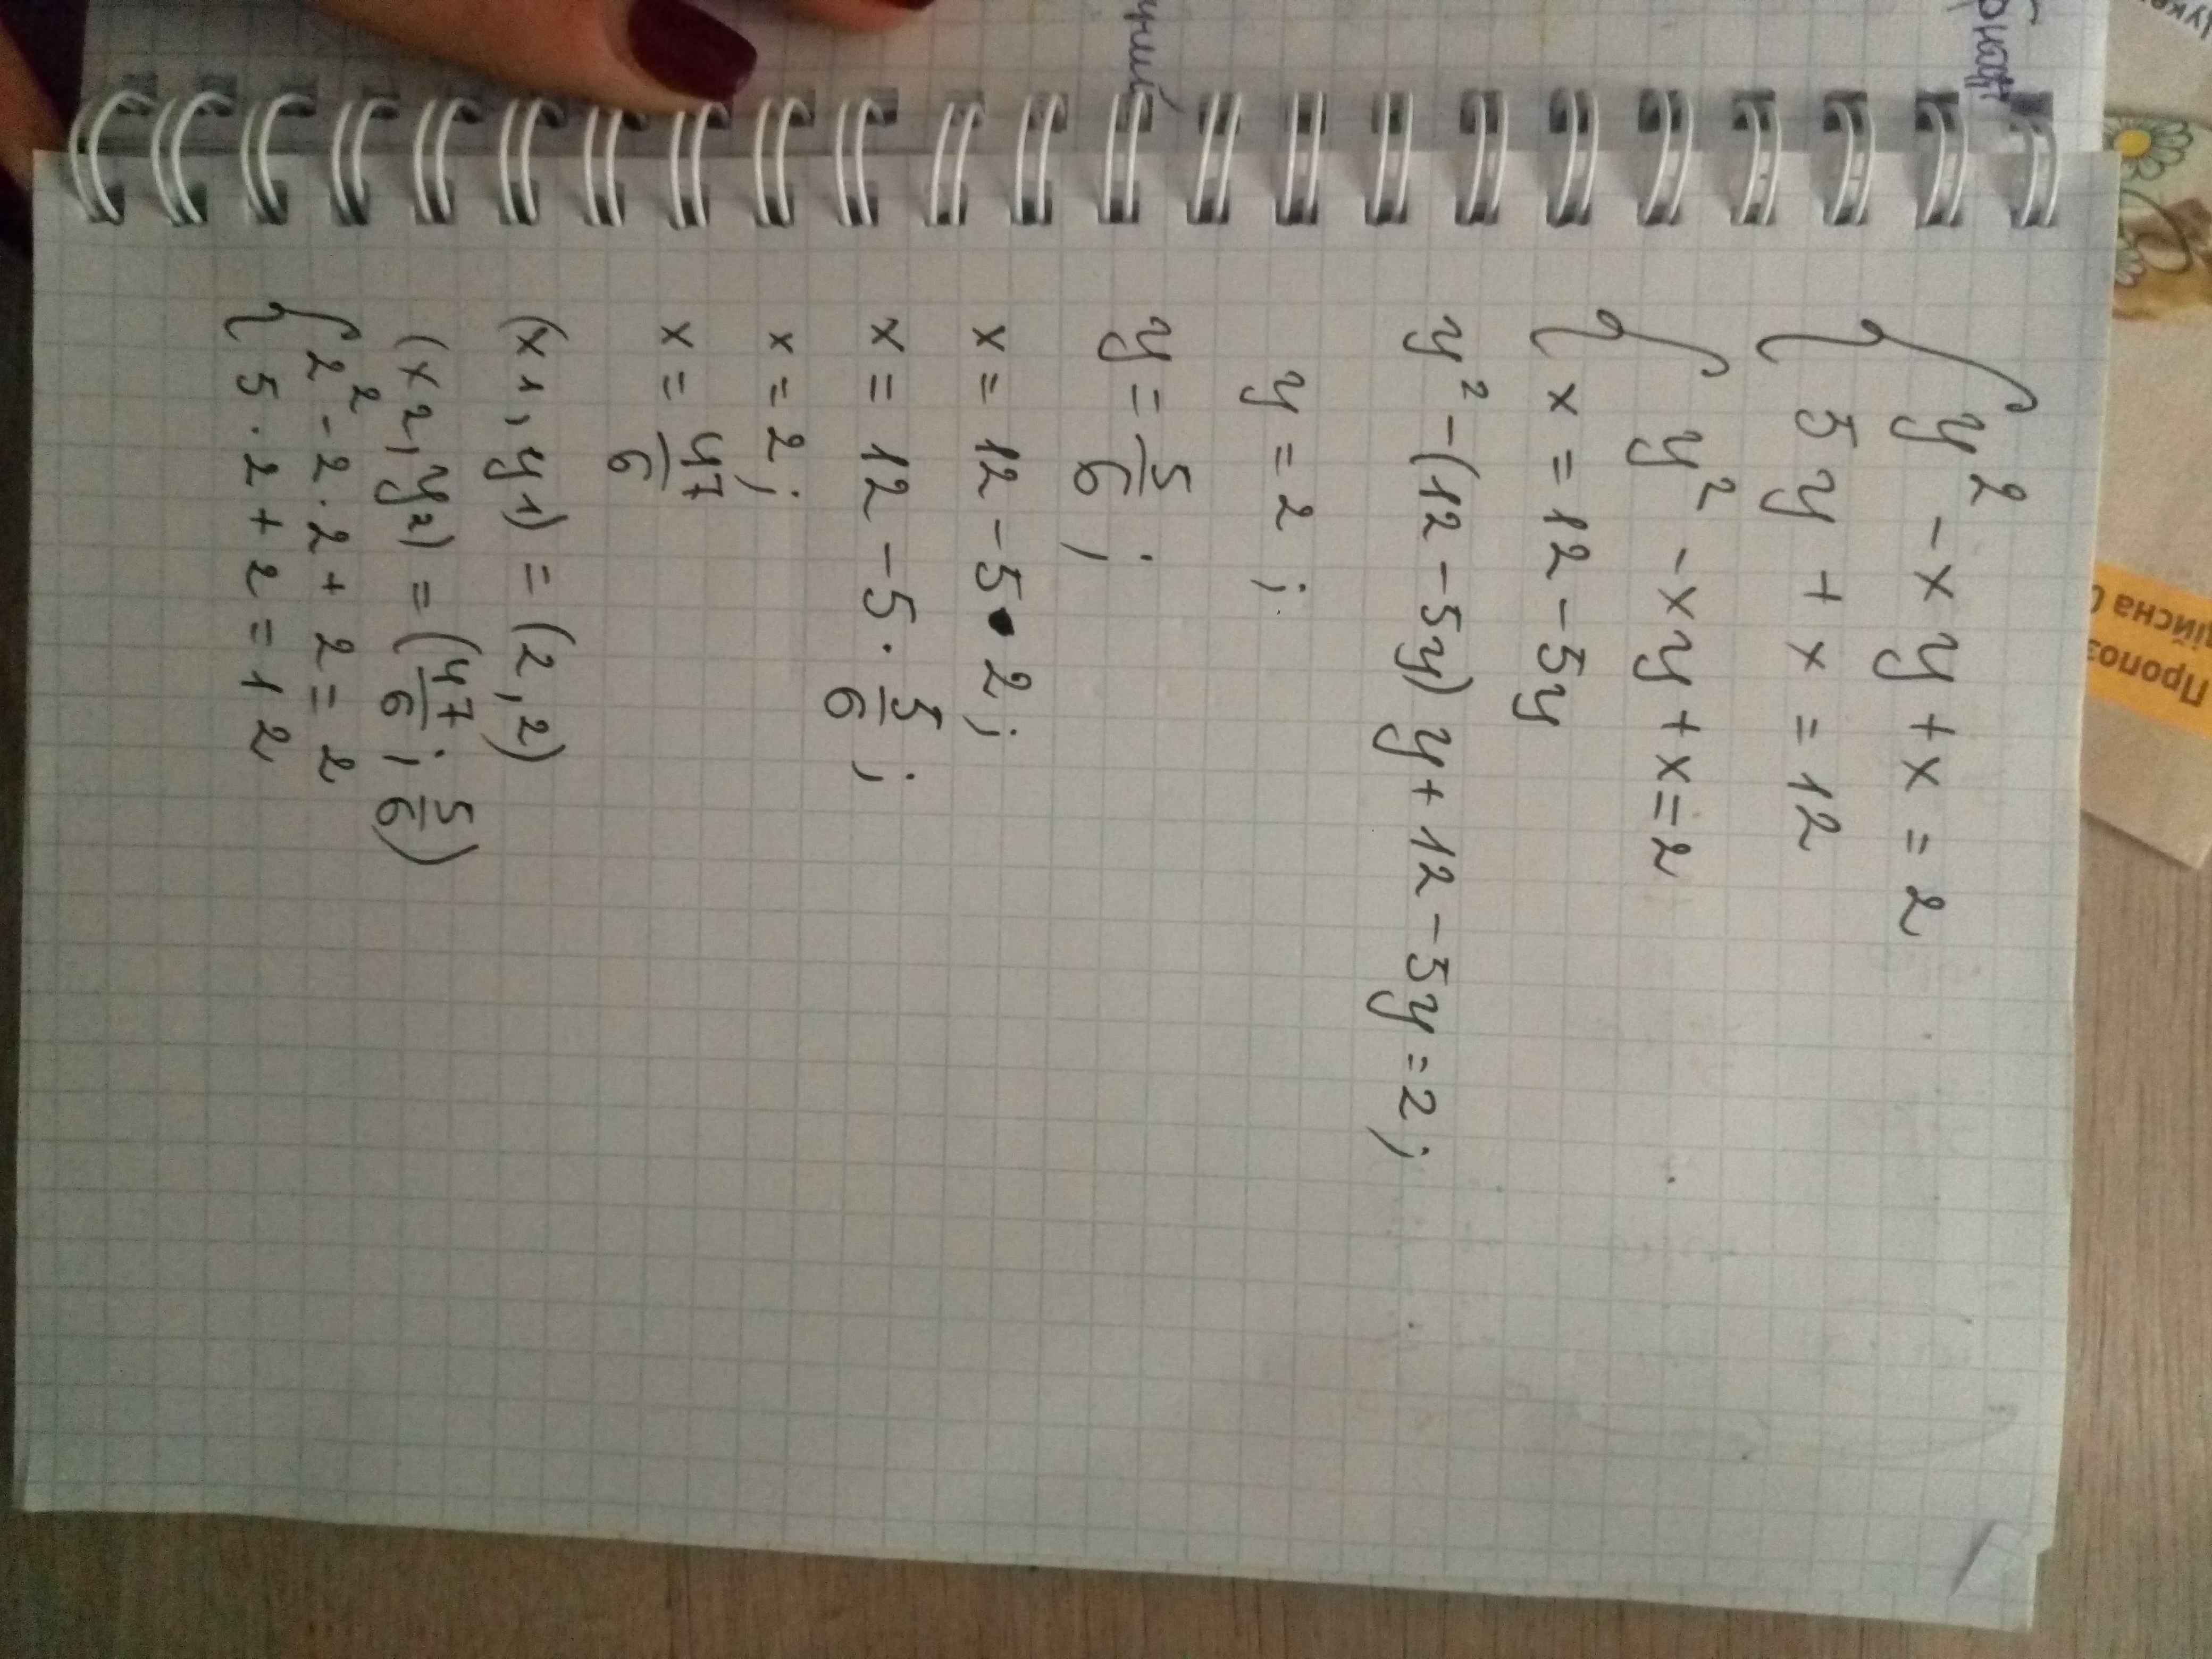 { y² - xy + x = 2
5y + x = 12
{ y² - xy + x = 2
x = 12 - 5y
y² - (12 - 5y) y + 12 - 5y = 2;
y = 2;
y = 5/6;
x = 12 - 5 · 2;
x = 12 - 5 · 5/6;
x = 2;
x = 47/6
(x1, y1) = (2, 2)
(x2, y2) = (47/6; 5/6)
{ 2² - 2 · 2 + 2 = 2
5 · 2 + 2 = 12